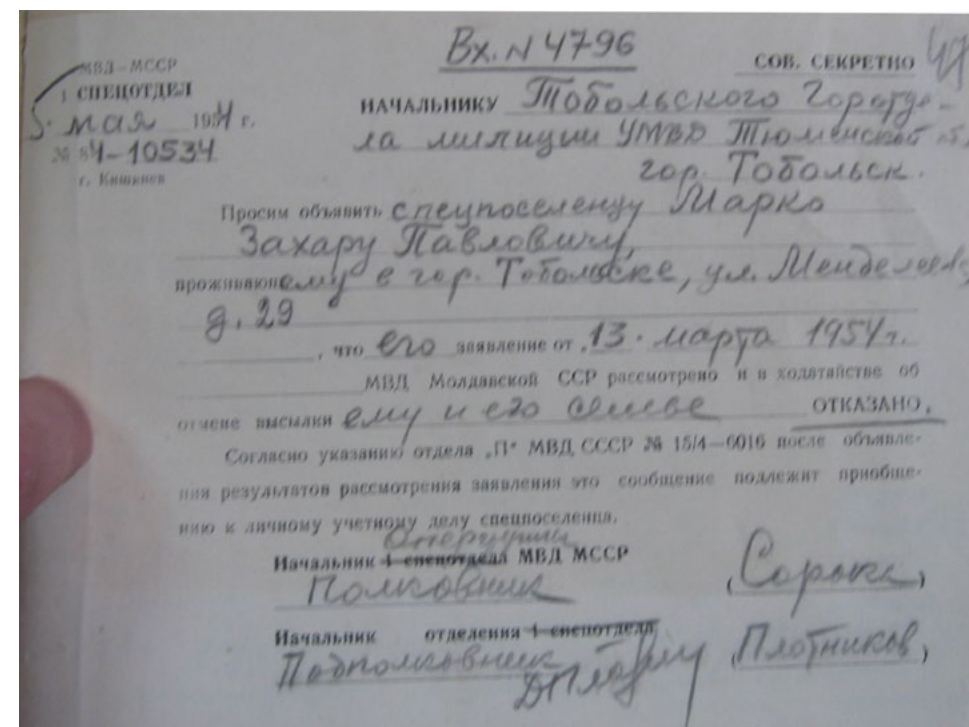 Вх. N 4796
47
МВД–МССР
СОВ. СЕКРЕТНО
1 СПЕЦОТДЕЛ
НАЧАЛЬНИКУ Тобольского Горотде-
5. мая 1954 г.
ла милиции УМВД Тюменской
№ 54-10534
гор. Тобольск.
г. Кишинев
Просим объявить спецпоселенцу Марко
Захару Павловичу,
проживающему в гор. Тобольске, ул. Менделеева,
д. 29
, что его заявление от 13. марта 1954 г.
МВД Молдавской ССР рассмотрено и в ходатайстве об
отмене высылки ему и его семье ОТКАЗАНО.
Согласно указанию отдела „П" МВД СССР № 15/4—6016 после объявле-
ния результатов рассмотрения заявления это сообщение подлежит приобще-
нию к личному учетному делу спецпоселенца.
Начальник 1 спецотдела МВД МССР
Полковник (Сорока)
Начальник отделения 1 спецотдела
Подполковник (Плотников)